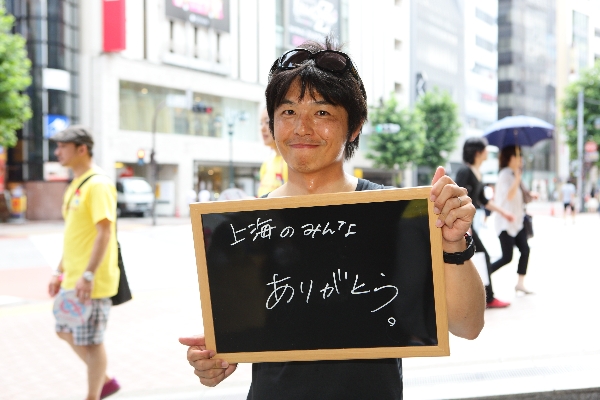 上海のみんな
ありがとう。